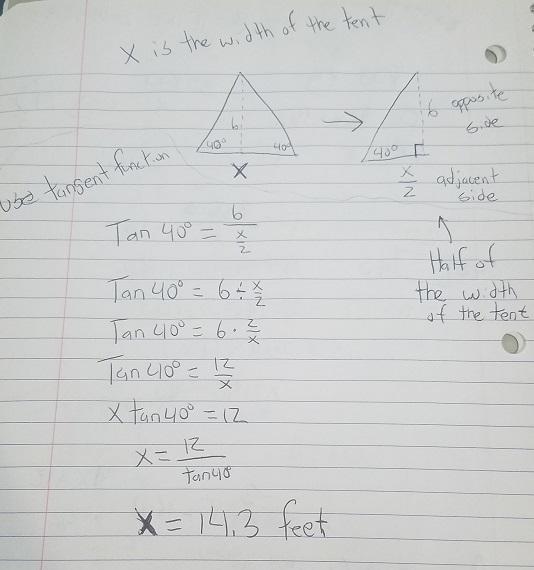 X is the width of the tent
6
40°
40°
X
6 opposite
side
40°
x/2 adjacent
side
Half of
the width
of the tent
Use tangent function
Tan 40° = 6/(x/2)
Tan 40° = 6 ÷ x/2
Tan 40° = 6 · 2/x
Tan 40° = 12/x
x tan 40° = 12
x = 12/tan 40
X = 14.3 feet